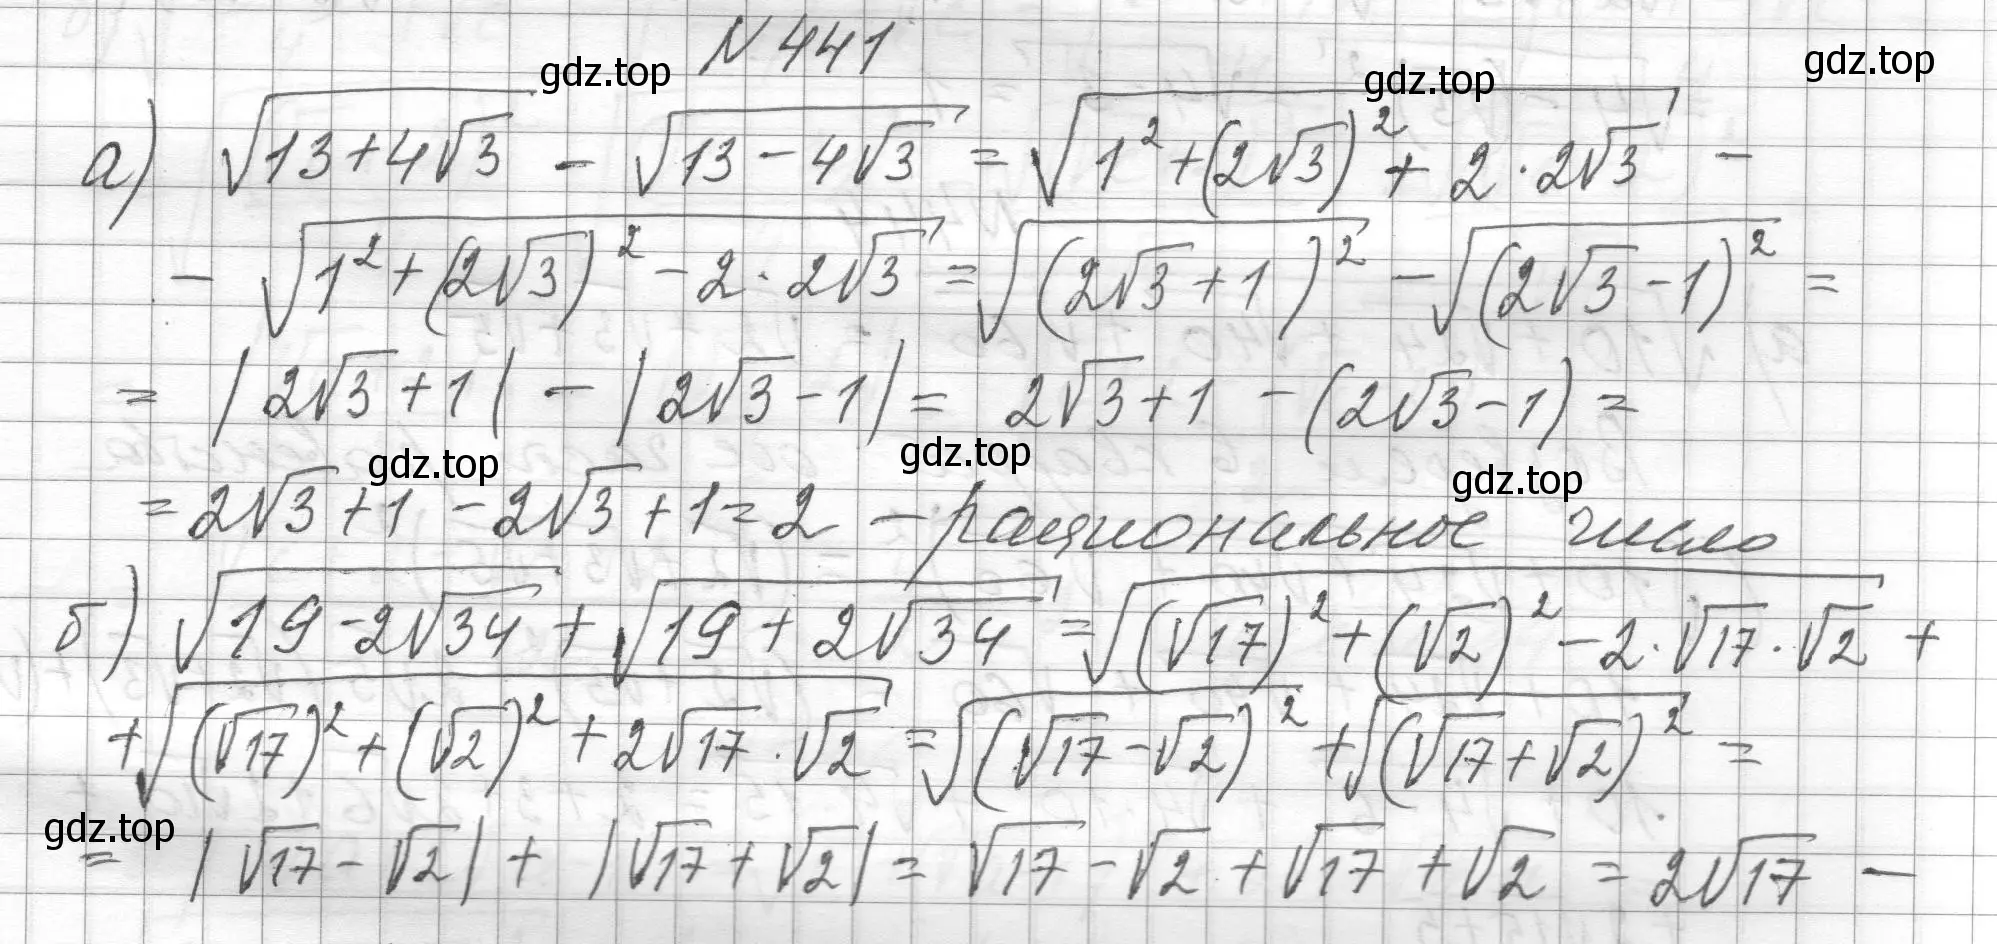 N 441
gdz.top gdz.top gdz.top
а) √(13+4√3) - √(13-4√3) = √(1²+(2√3)²+2·2√3) -
- √(1²+(2√3)²-2·2√3) = √((2√3+1)²) - √((2√3-1)²) =
= |2√3+1| - |2√3-1| = 2√3+1 - (2√3-1) =
gdz.top gdz.top gdz.top
= 2√3+1 - 2√3+1 = 2 - рациональное число
б) √(19-2√34) + √(19+2√34) = √((√17)²+(√2)²-2·√17·√2) +
+ √((√17)²+(√2)²+2√17·√2) = √((√17-√2)²) + √((√17+√2)²) =
gdz.top
= |√17-√2| + |√17+√2| = √17-√2+√17+√2 = 2√17 -